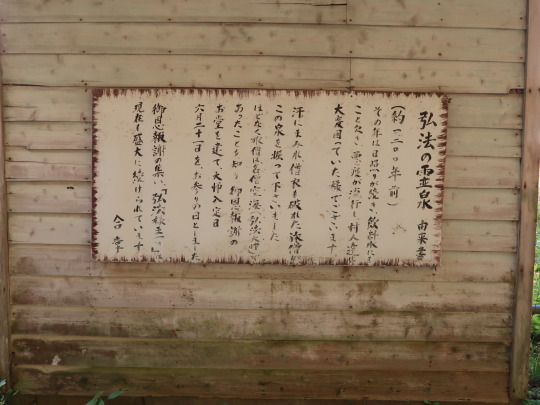 弘法の霊泉 由来書
（約一二〇〇年前）
その年は日照りが続き、飲料水にも
こと欠き、悪疫が流行し、村人達は
大変困っていた様でございます
汗にまみれ僧衣も破れた旅僧が
この泉を掘って下さいました
ほどなく旅僧は高僧空海（弘法大師）で
あったことを知り御恩報謝の
お堂を建て、大師入定日
六月二十一日を、お参りの日としました
御恩報謝の集い、「弘法様まつり」は
現在も盛大に続けられています
合掌